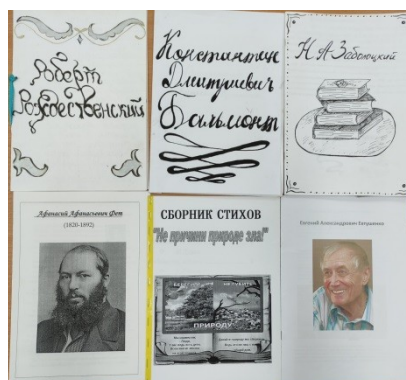 Роберт
Рождественский
Константин
Дмитриевич
Бальмонт
Н А Заболоцкий
Афанасий Афанасьевич Фет
(1820-1892)
СБОРНИК СТИХОВ
"Не причини природе зла!"
ПРИРОДУ
Евгений Александрович Евтушенко